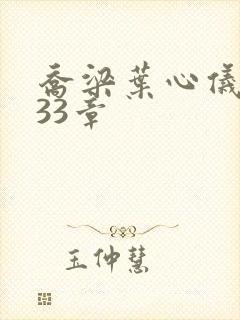 乔梁葉心儀
33章
王仲慧